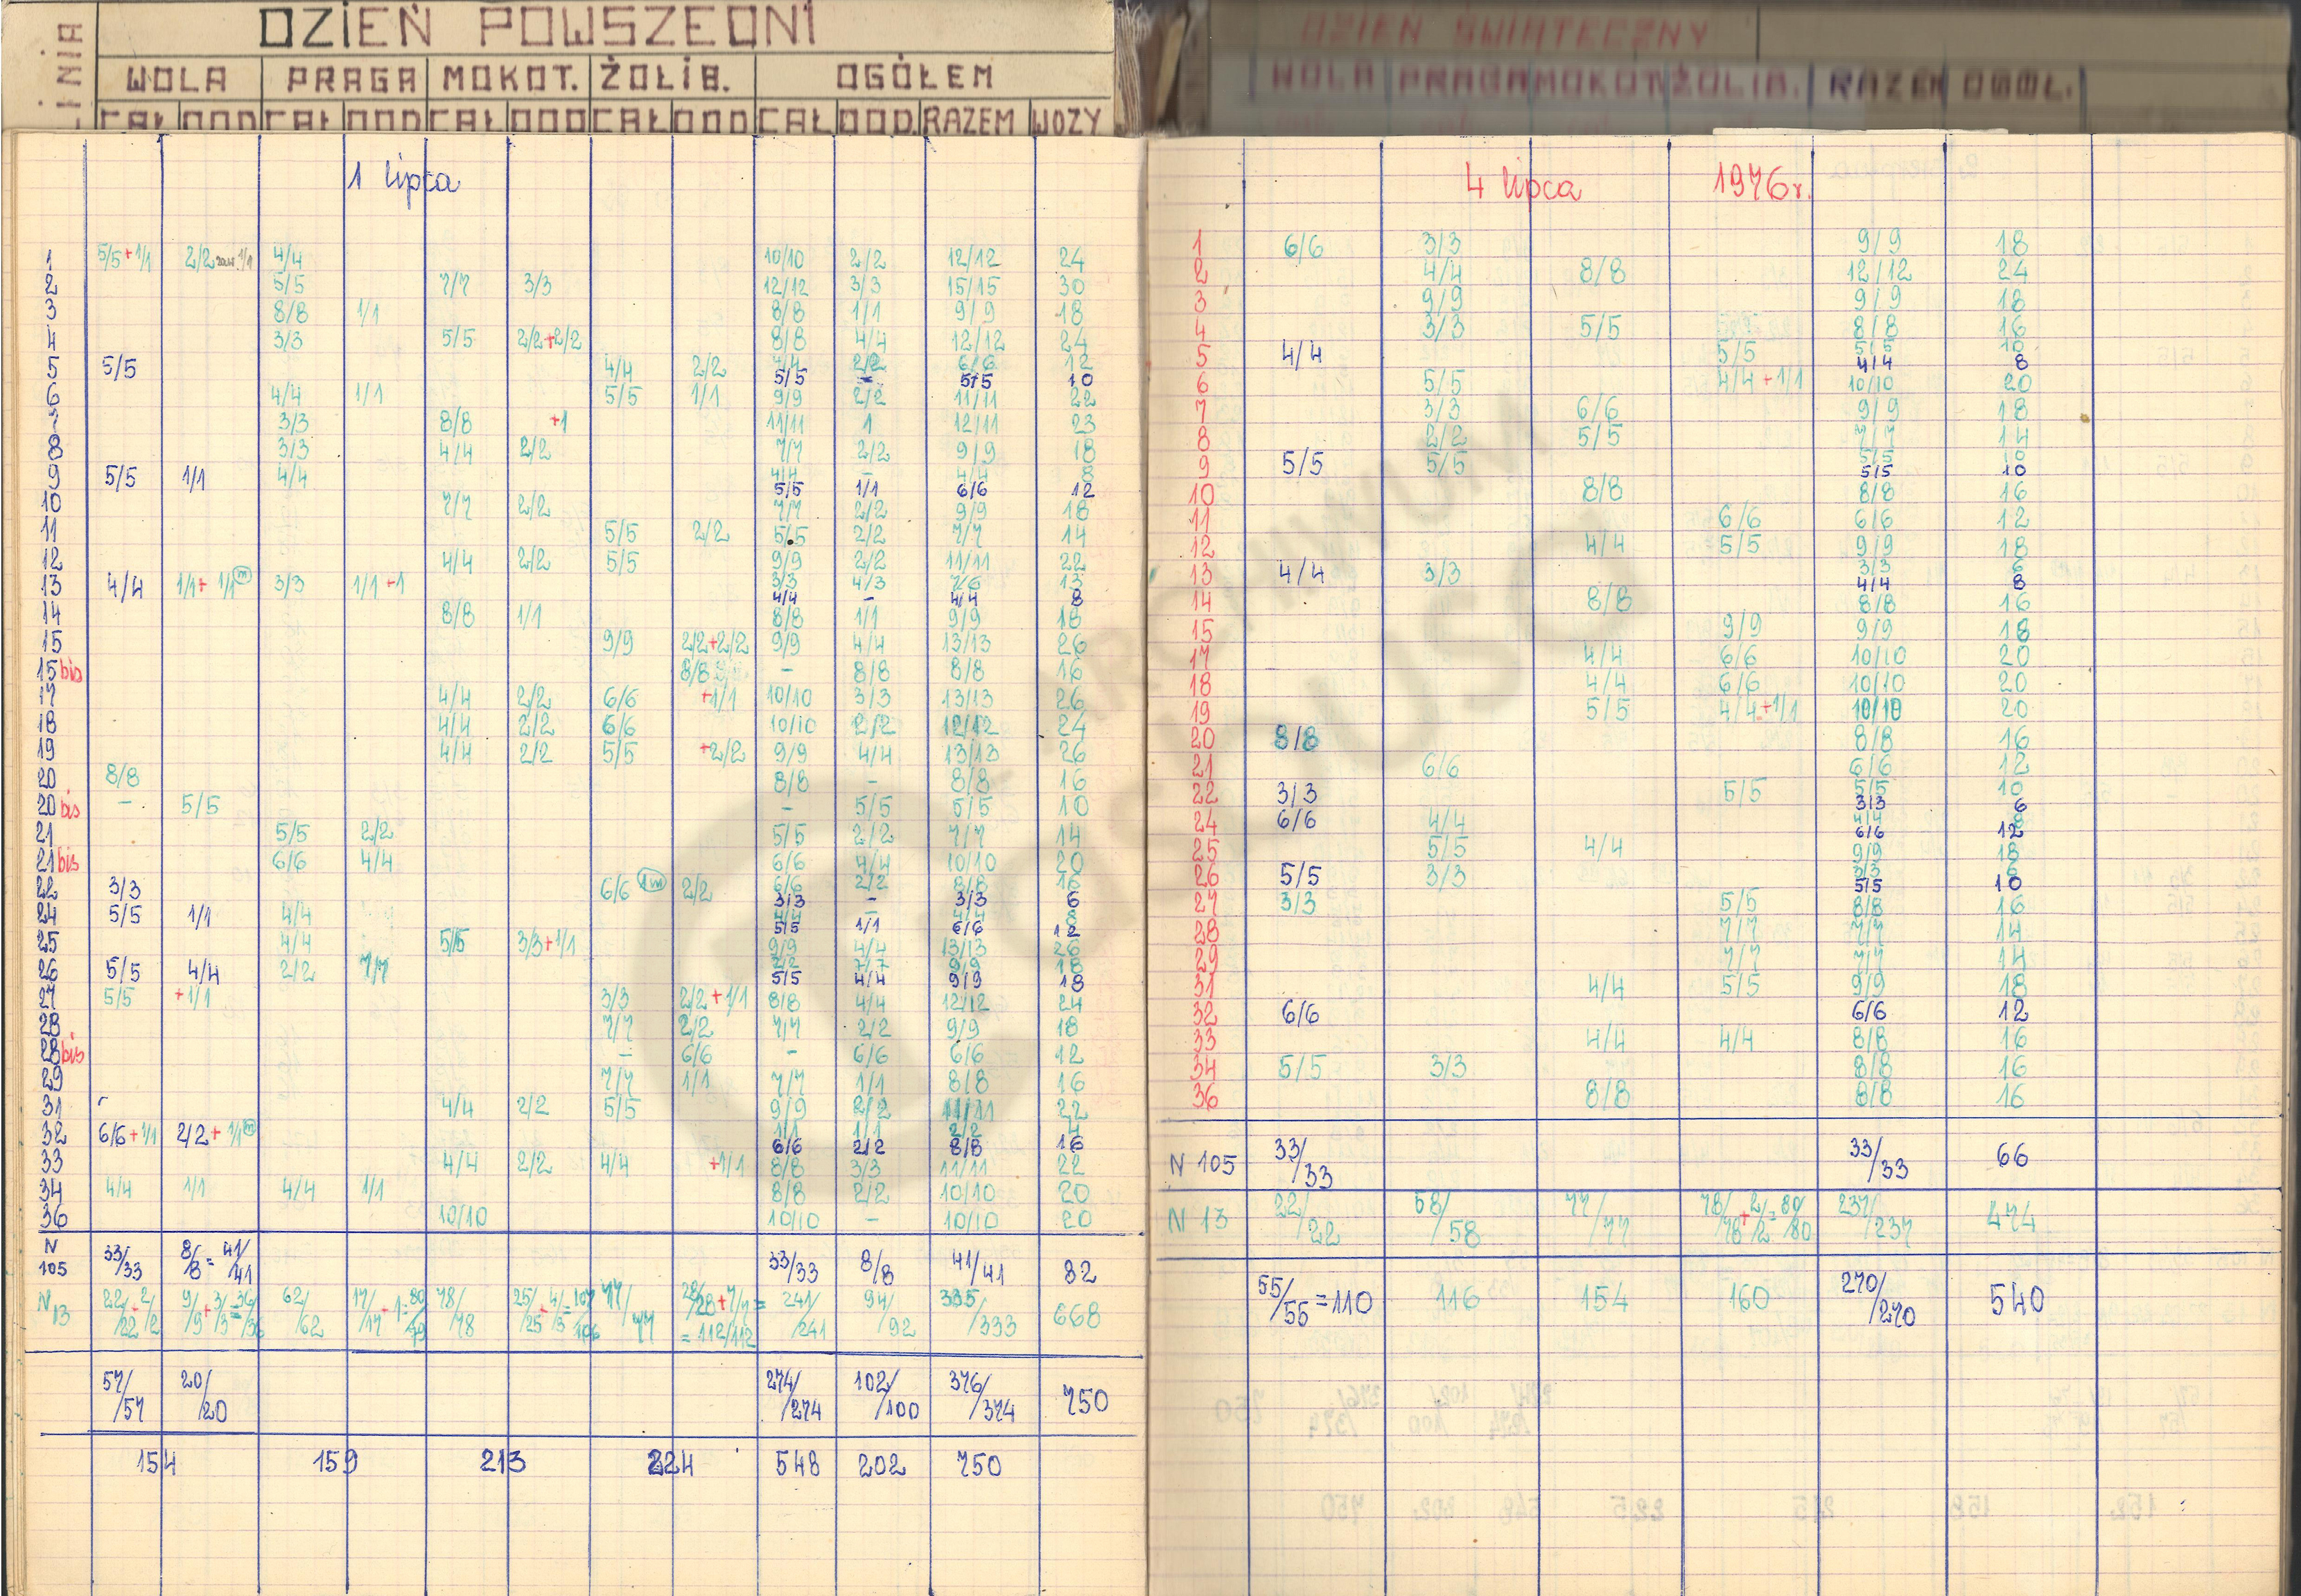 LINIA DZIEŃ POWSZEDNI
WOLA PRAGA MOKOT. ŻOLIB. OGÓŁEM
CAŁ DOD CAŁ DOD CAŁ DOD CAŁ DOD CAŁ DOD. RAZEM WOZY
1 lipca
1 5/5+1/1 2/2 1/1 4/4 10/10 2/2 12/12 24
2 5/5 7/7 3/3 12/12 3/3 15/15 30
3 8/8 1/1 8/8 1/1 9/9 18
4 3/3 5/5 2/2+2/2 8/8 4/4 12/12 24
5 5/5 4/4 2/2 4/4 2/2 6/6 12
5/5 - 5/5 10
6 4/4 1/1 5/5 1/1 9/9 2/2 11/11 22
7 3/3 8/8 +1 11/11 1 12/11 23
8 3/3 4/4 2/2 7/7 2/2 9/9 18
9 5/5 1/1 4/4 4/4 - 4/4 8
5/5 1/1 6/6 12
10 7/7 2/2 7/7 2/2 9/9 18
11 5/5 2/2 5/5 2/2 7/7 14
12 4/4 2/2 5/5 9/9 2/2 11/11 22
13 4/4 1/1+1/1 m 3/3 1/1+1 3/3 4/3 7/6 13
4/4 - 4/4 8
14 8/8 1/1 8/8 1/1 9/9 18
15 9/9 2/2+2/2 9/9 4/4 13/13 26
15 bis 8/8 - 8/8 8/8 16
17 4/4 2/2 6/6 +1/1 10/10 3/3 13/13 26
18 4/4 2/2 6/6 10/10 2/2 12/12 24
19 4/4 2/2 5/5 +2/2 9/9 4/4 13/13 26
20 8/8 8/8 - 8/8 16
20 bis - 5/5 - 5/5 5/5 10
21 5/5 2/2 5/5 2/2 7/7 14
21 bis 6/6 4/4 6/6 4/4 10/10 20
22 3/3 6/6 1m 2/2 6/6 2/2 8/8 16
3/3 - 3/3 6
24 5/5 1/1 4/4 4/4 - 4/4 8
5/5 1/1 6/6 12
25 4/4 5/5 3/3+1/1 9/9 4/4 13/13 26
26 5/5 4/4 2/2 7/7 2/2 7/7 9/9 18
5/5 4/4 9/9 18
27 5/5 +1/1 3/3 2/2+1/1 8/8 4/4 12/12 24
28 7/7 2/2 7/7 2/2 9/9 18
28 bis - 6/6 - 6/6 6/6 12
29 7/7 1/1 7/7 1/1 8/8 16
31 4/4 2/2 5/5 9/9 2/2 11/11 22
32 6/6+1/1 2/2+1/1 m 1/1 1/1 2/2 4
6/6 2/2 8/8 16
33 4/4 2/2 4/4 +1/1 8/8 3/3 11/11 22
34 4/4 1/1 4/4 1/1 8/8 2/2 10/10 20
36 10/10 10/10 - 10/10 20
N 105 33/33 8/8=41/41 33/33 8/8 41/41 82
N 13 22/22+2/2 9/9+3/3=36/36 62/62 17/17+1=80/79 78/78 25/25+4/3=107/106 77/77 28/28+7/7=112/112 241/241 94/92 335/333 668
57/57 20/20 274/274 102/100 376/374 750
154 159 213 224 548 202 750
DZIEŃ ŚWIĄTECZNY
WOLA PRAGA MOKOT ŻOLIB. RAZEM OGÓŁ.
4 lipca 1976r.
1 6/6 3/3 9/9 18
2 4/4 8/8 12/12 24
3 9/9 9/9 18
4 3/3 5/5 8/8 16
5 4/4 5/5 5/5 10
4/4 8
6 5/5 4/4+1/1 10/10 20
7 3/3 6/6 9/9 18
8 2/2 5/5 7/7 14
9 5/5 5/5 5/5 10
5/5 10
10 8/8 8/8 16
11 6/6 6/6 12
12 4/4 5/5 9/9 18
13 4/4 3/3 3/3 6
4/4 8
14 8/8 8/8 16
15 9/9 9/9 18
17 4/4 6/6 10/10 20
18 4/4 6/6 10/10 20
19 5/5 4/4+1/1 10/10 20
20 8/8 8/8 16
21 6/6 6/6 12
22 3/3 5/5 5/5 10
3/3 6
24 6/6 4/4 4/4 8
6/6 12
25 5/5 4/4 9/9 18
26 5/5 3/3 3/3 6
5/5 10
27 3/3 5/5 8/8 16
28 7/7 7/7 14
29 7/7 7/7 14
31 4/4 5/5 9/9 18
32 6/6 6/6 12
33 4/4 4/4 8/8 16
34 5/5 3/3 8/8 16
36 8/8 8/8 16
N 105 33/33 33/33 66
N 13 22/22 58/58 77/77 78/78+2/2=80/80 237/237 474
55/55=110 116 154 160 270/270 540